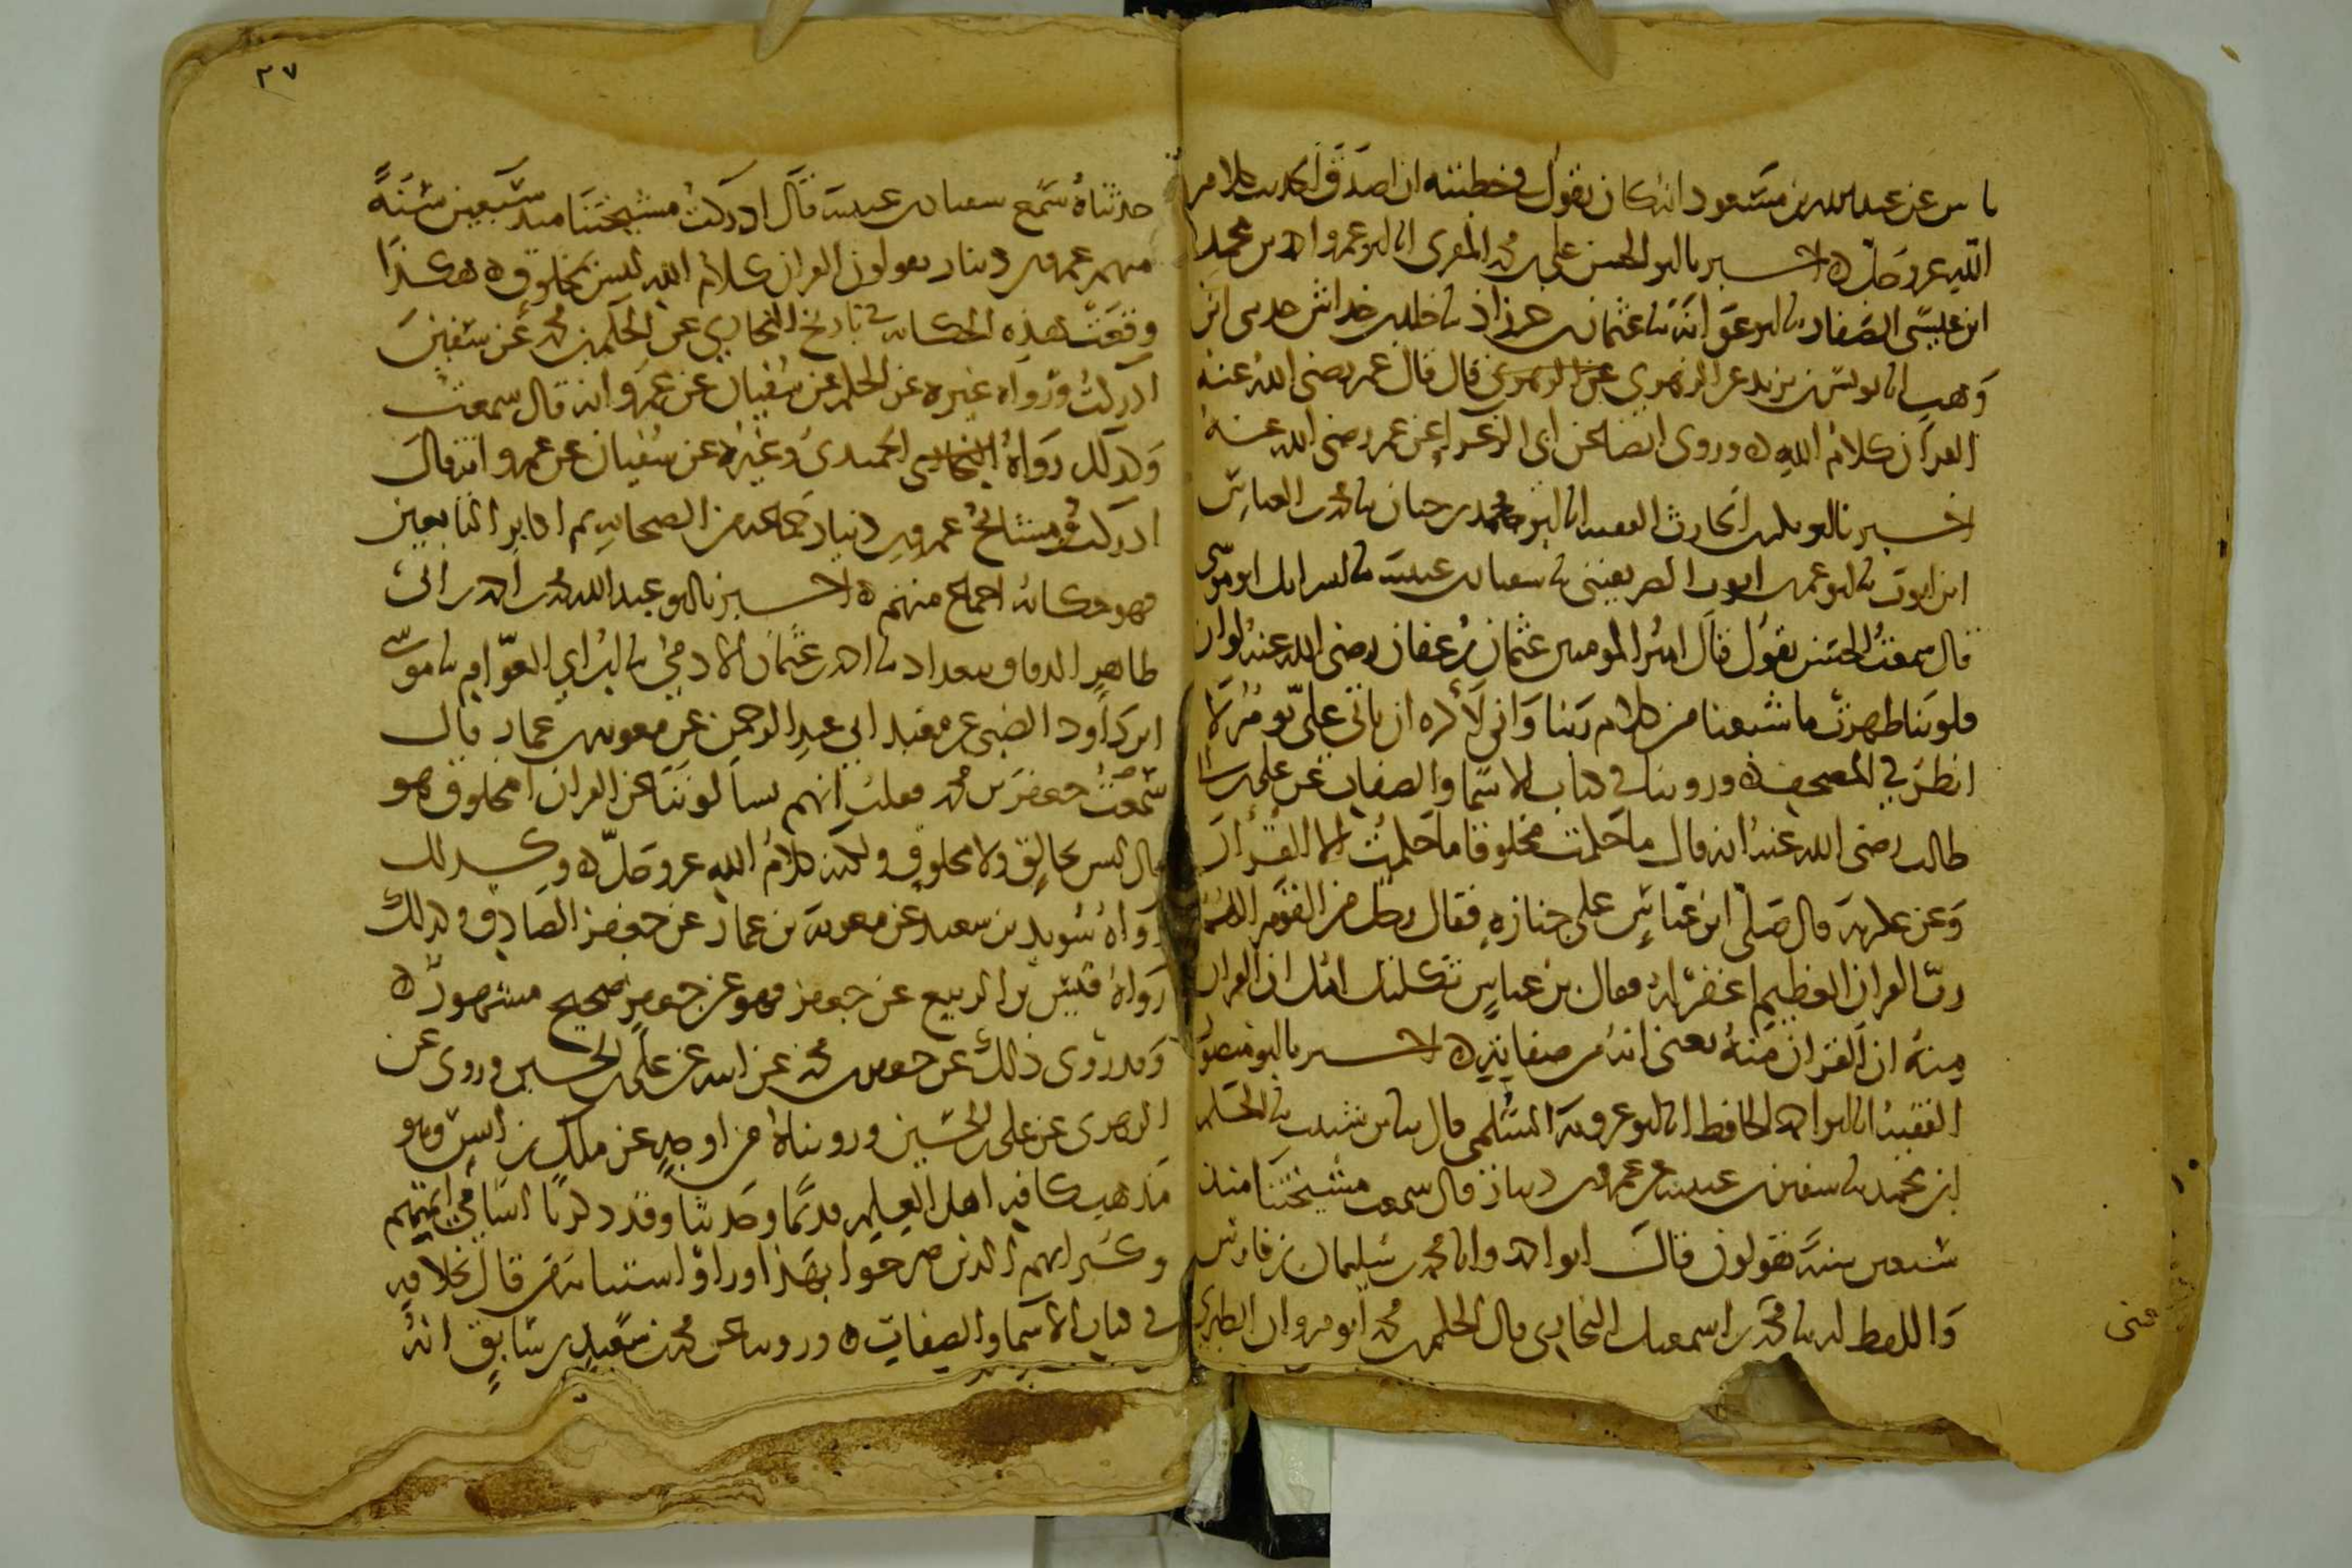 عن عبد الله بن مسعود انه كان يقول في خطبته ان اصدق الحديث كلام
الله عز وجل ه اخبرنا ابو الحسن علي بن محمد المقرى انا ابو عمرو احمد بن محمد
ابن عيسى الصفار نا ابو عوانة نا عثمان بن خرزاذ نا خالد بن خداش حدثني ابن
وهب انا يونس بن يزيد عن الزهري عن الزهري قال قال عمر رضى الله عنه
القرآن كلام الله ه وروى ايضا عن ابي الزعراء عن عمر رضى الله عنه
اخبرنا ابو بكر بن الحارث الفقيه انا ابو محمد بن حيان نا محمد بن العباس
ابن ايوب نا ابو عمر بن ايوب الصريفيني نا سفيان بن عيينة نا اسرائيل ابو موسى
قال سمعت الحسن يقول قال امير المومنين عثمان بن عفان رضى الله عنه لو ان
قلوبنا طهرت ما شبعنا من كلام ربنا واني لأكره ان ياتي علي يوم لا
انظر في المصحف ه وروينا في كتاب الاسما والصفات عن علي بن ابي
طالب رضى الله عنه انه قال ما حكمت مخلوقا ما حكمت الا القرآن
وعن عكرمة قال صلى ابن عباس على جنازة فقال رجل من القوم اللهم
رب القران العظيم اغفر له فقال بن عباس ثكلتك امك ان القران
منه ان القران منه يعنى انه من صفاته ه اخبرنا ابو منصور
الفقيه انا ابو احمد الحافظ انا ابو عروبة السلمى قال نا سلمة بن شبيب نا الحكم
ابن محمد نا سفين بن عيينة عن عمرو بن دينار قال سمعت مشيختنا منذ
سبعين سنة يقولون قال ابو احمد وانا محمد بن سليمان بن فارس
واللفظ له نا محمد بن اسمعيل البخاري قال الحكم بن محمد ابو مروان الطبري
٣٧
حدثناه سمع سفيان بن عيينة قال ادركت مشيختنا منذ سبعين سنة
منهم عمرو بن دينار يقولون القران كلام الله ليس بمخلوق ه هكذا
وقعت هذه الحكاية في تاريخ البخاري عن الحكم بن محمد عن سفين
ادركت ورواه غيره عن الحكم عن سفيان عن عمرو انه قال سمعت
وكذلك رواه البخاري الحميدى وغيره عن سفيان عن عمرو انه قال
ادركت ومشائخ عمرو بن دينار جماعة من الصحابة ثم اكابر التابعين
فهو حكاية اجماع منهم ه اخبرنا ابو عبد الله محمد بن احمد بن ابي
طاهر الدقاق ببغداد نا احمد بن عثمان الادمي نا ابن ابي العوام نا موسى
ابن داود الضبى عن معبد ابي عبد الرحمن عن معوية بن عمار قال
سمعت جعفر بن محمد فقلت انهم يسألوننا عن القران امخلوق هو
قال ليس بخالق ولا مخلوق ولكنه كلام الله عز وجل ه وكذلك
رواه سويد بن سعيد عن معوية بن عمار عن جعفر الصادق وكذلك
رواه قيس بن الربيع عن جعفر فهو عن جعفر صحيح مشهور ه
وقد روى ذلك عن جعفر بن محمد عن ابيه عن علي بن الحسين وروى عن
الزهرى عن علي بن الحسين ورويناه من اوجه عن ملك بن انس وهو
مذهب كافة اهل العلم قديما وحديثا وقد ذكرنا اسامي ائمتهم
وكبرائهم الذين صرحوا بهذا وراوا استتابة من قال بخلافه
في كتاب الاسما والصفات ه وروينا عن محمد بن سعيد بن سابق انه